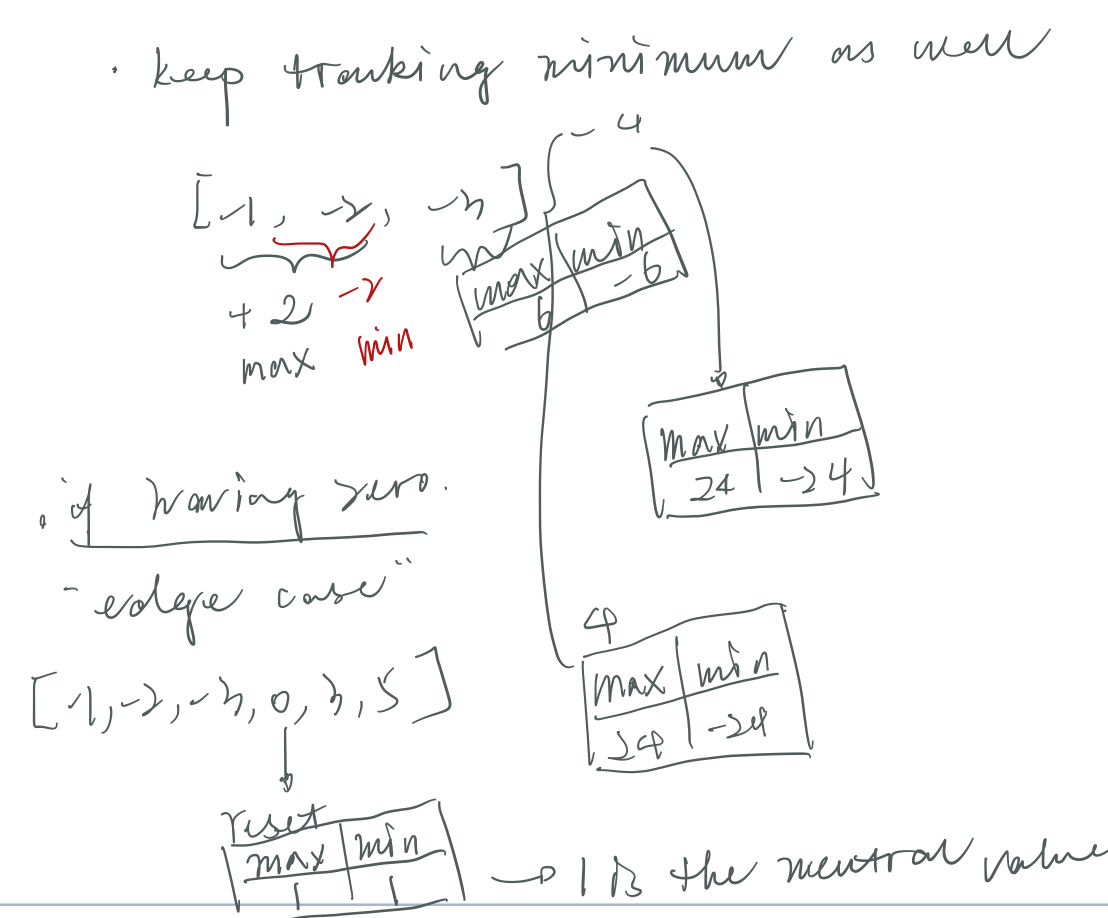 · keep tracking minimum as well
- 4
[-1, -2, -3]
+2 -2
max min
max min
6 -6
max min
24 -24
· if having zero.
"edge case"
4
max min
24 -24
[-1, -2, -3, 0, 3, 5]
reset
max min
1 1
→ 1 is the neutral value